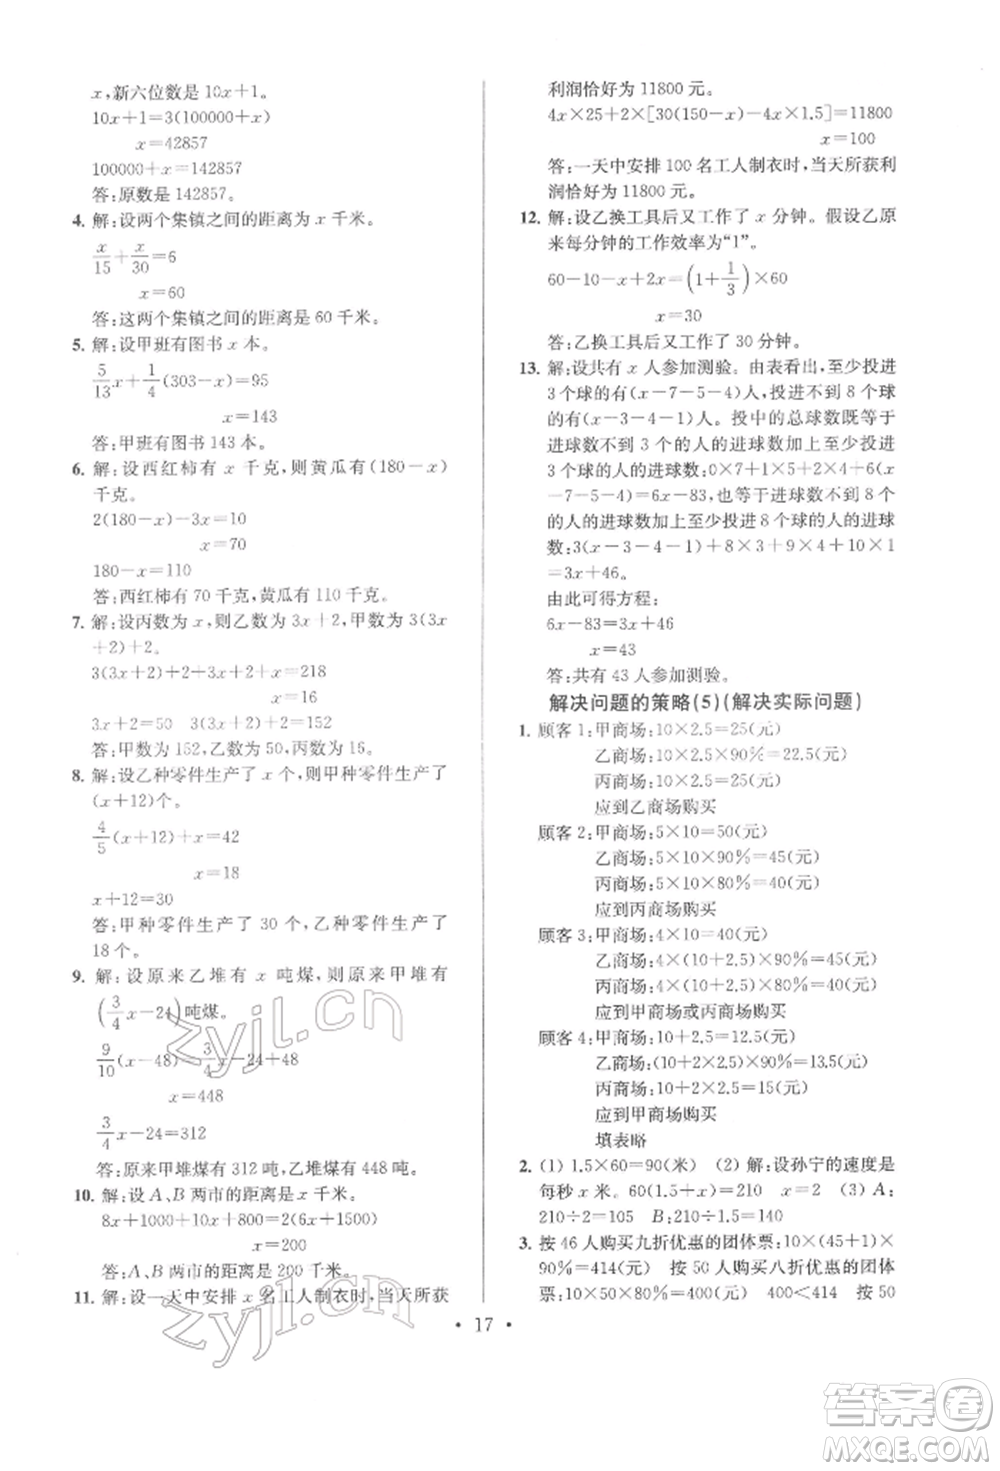 x,新六位数是 10x+1。
10x+1=3(100000+x)
x=42857
100000+x=142857
答:原数是 142857。
4. 解:设两个集镇之间的距离为 x 千米。
x/15+x/30=6
x=60
答:这两个集镇之间的距离是 60 千米。
5. 解:设甲班有图书 x 本。
5/13x+1/4(303-x)=95
x=143
答:甲班有图书 143 本。
6. 解:设西红柿有 x 千克,则黄瓜有(180-x)
千克。
2(180-x)-3x=10
x=70
180-x=110
答:西红柿有 70 千克,黄瓜有 110 千克。
7. 解:设丙数为 x,则乙数为 3x+2,甲数为 3(3x
+2)+2。
3(3x+2)+2+3x+2+x=218
x=16
3x+2=50 3(3x+2)+2=152
答:甲数为 152,乙数为 50,丙数为 16。
8. 解:设乙种零件生产了 x 个,则甲种零件生产了
(x+12)个。
4/5(x+12)+x=42
x=18
x+12=30
答:甲种零件生产了 30 个,乙种零件生产了
18 个。
9. 解:设原来乙堆有 x 吨煤,则原来甲堆有
(3/4x-24)吨煤。
9/10(x-48)=3/4x-24+48
x=448
3/4x-24=312
答:原来甲堆煤有 312 吨,乙堆煤有 448 吨。
10. 解:设 A、B 两市的距离是 x 千米。
8x+1000+10x+800=2(6x+1500)
x=200
答:A、B 两市的距离是 200 千米。
11. 解:设一天中安排 x 名工人制衣时,当天所获
利润恰好为 11800 元。
4x×25+2×[30(150-x)-4x×1.5]=11800
x=100
答:一天中安排 100 名工人制衣时,当天所获利
润恰好为 11800 元。
12. 解:设乙换工具后又工作了 x 分钟。假设乙原
来每分钟的工作效率为“1”。
60-10-x+2x=(1+1/3)×60
x=30
答:乙换工具后又工作了 30 分钟。
13. 解:设共有 x 人参加测验。由表看出,至少投进
3 个球的有(x-7-5-4)人,投进不到 8 个球
的有(x-3-4-1)人。投中的总球数既等于
进球数不到 3 个的人的进球数加上至少投进
3 个球的人的进球数:0×7+1×5+2×4+6×(x
-7-5-4)=6x-83,也等于进球数不到 8 个
的人的进球数加上至少投进 8 个球的人的进球
数:3(x-3-4-1)+8×3+9×4+10×1
=3x+46。
由此可得方程:
6x-83=3x+46
x=43
答:共有 43 人参加测验。
解决问题的策略(5)(解决实际问题)
1. 顾客 1:甲商场:10×2.5=25(元)
乙商场:10×2.5×90%=22.5(元)
丙商场:10×2.5=25(元)
应到乙商场购买
顾客 2:甲商场:5×10=50(元)
乙商场:5×10×90%=45(元)
丙商场:5×10×80%=40(元)
应到丙商场购买
顾客 3:甲商场:4×10=40(元)
乙商场:4×(10+2.5)×90%=45(元)
丙商场:4×(10+2.5)×80%=40(元)
应到甲商场或丙商场购买
顾客 4:甲商场:10+2.5=12.5(元)
乙商场:(10+2×2.5)×90%=13.5(元)
丙商场:10+2×2.5=15(元)
应到甲商场购买
填表略
2. (1) 1.5×60=90(米) (2) 解:设孙宁的速度是
每秒 x 米。60(1.5+x)=210 x=2 (3) A:
210÷2=105 B:210÷1.5=140
3. 按 46 人购买九折优惠的团体票:10×(45+1)×
90%=414(元) 按 50 人购买八折优惠的团体
票:10×50×80%=400(元) 400<414 按 50
• 17 •
zyjl.cn
zyjl.cn
答案卷
MXQE.COM